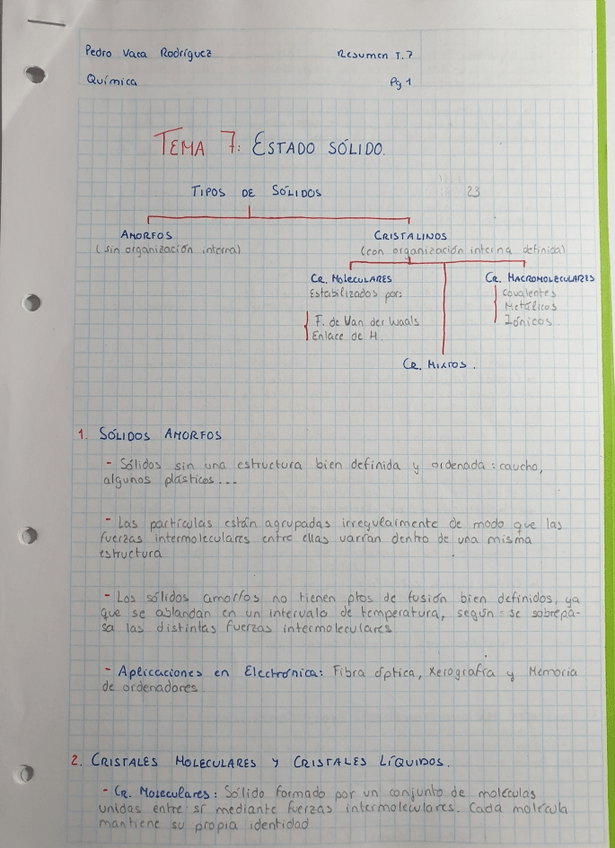 Pedro Vaca Rodríguez Resumen T.7
Química Pg 1
TEMA 7: ESTADO SÓLIDO.
TIPOS DE SÓLIDOS 23
AMORFOS CRISTALINOS
(sin organización interna) (con organización interna definida)
CR. MOLECULARES CR. MACROMOLECULARES
Estabilizados por: Covalentes
Metálicos
F. de Van der Waals Iónicos
Enlace de H.
CR. MIXTOS.
1. SÓLIDOS AMORFOS
- Sólidos sin una estructura bien definida y ordenada: caucho,
algunos plásticos...
- Las partículas están agrupadas irregularmente de modo que las
fuerzas intermoleculares entre ellas varían dentro de una misma
estructura
- Los sólidos amorfos no tienen ptos de fusión bien definidos, ya
que se ablandan en un intervalo de temperatura, según se sobrepa-
sa las distintas fuerzas intermoleculares
- Aplicaciones en Electrónica: Fibra óptica, Xerografía y Memoria
de ordenadores
2. CRISTALES MOLECULARES Y CRISTALES LÍQUIDOS.
- CR. MOLECULARES: Sólido formado por un conjunto de moléculas
unidas entre sí mediante fuerzas intermoleculares. Cada molécula
mantiene su propia identidad